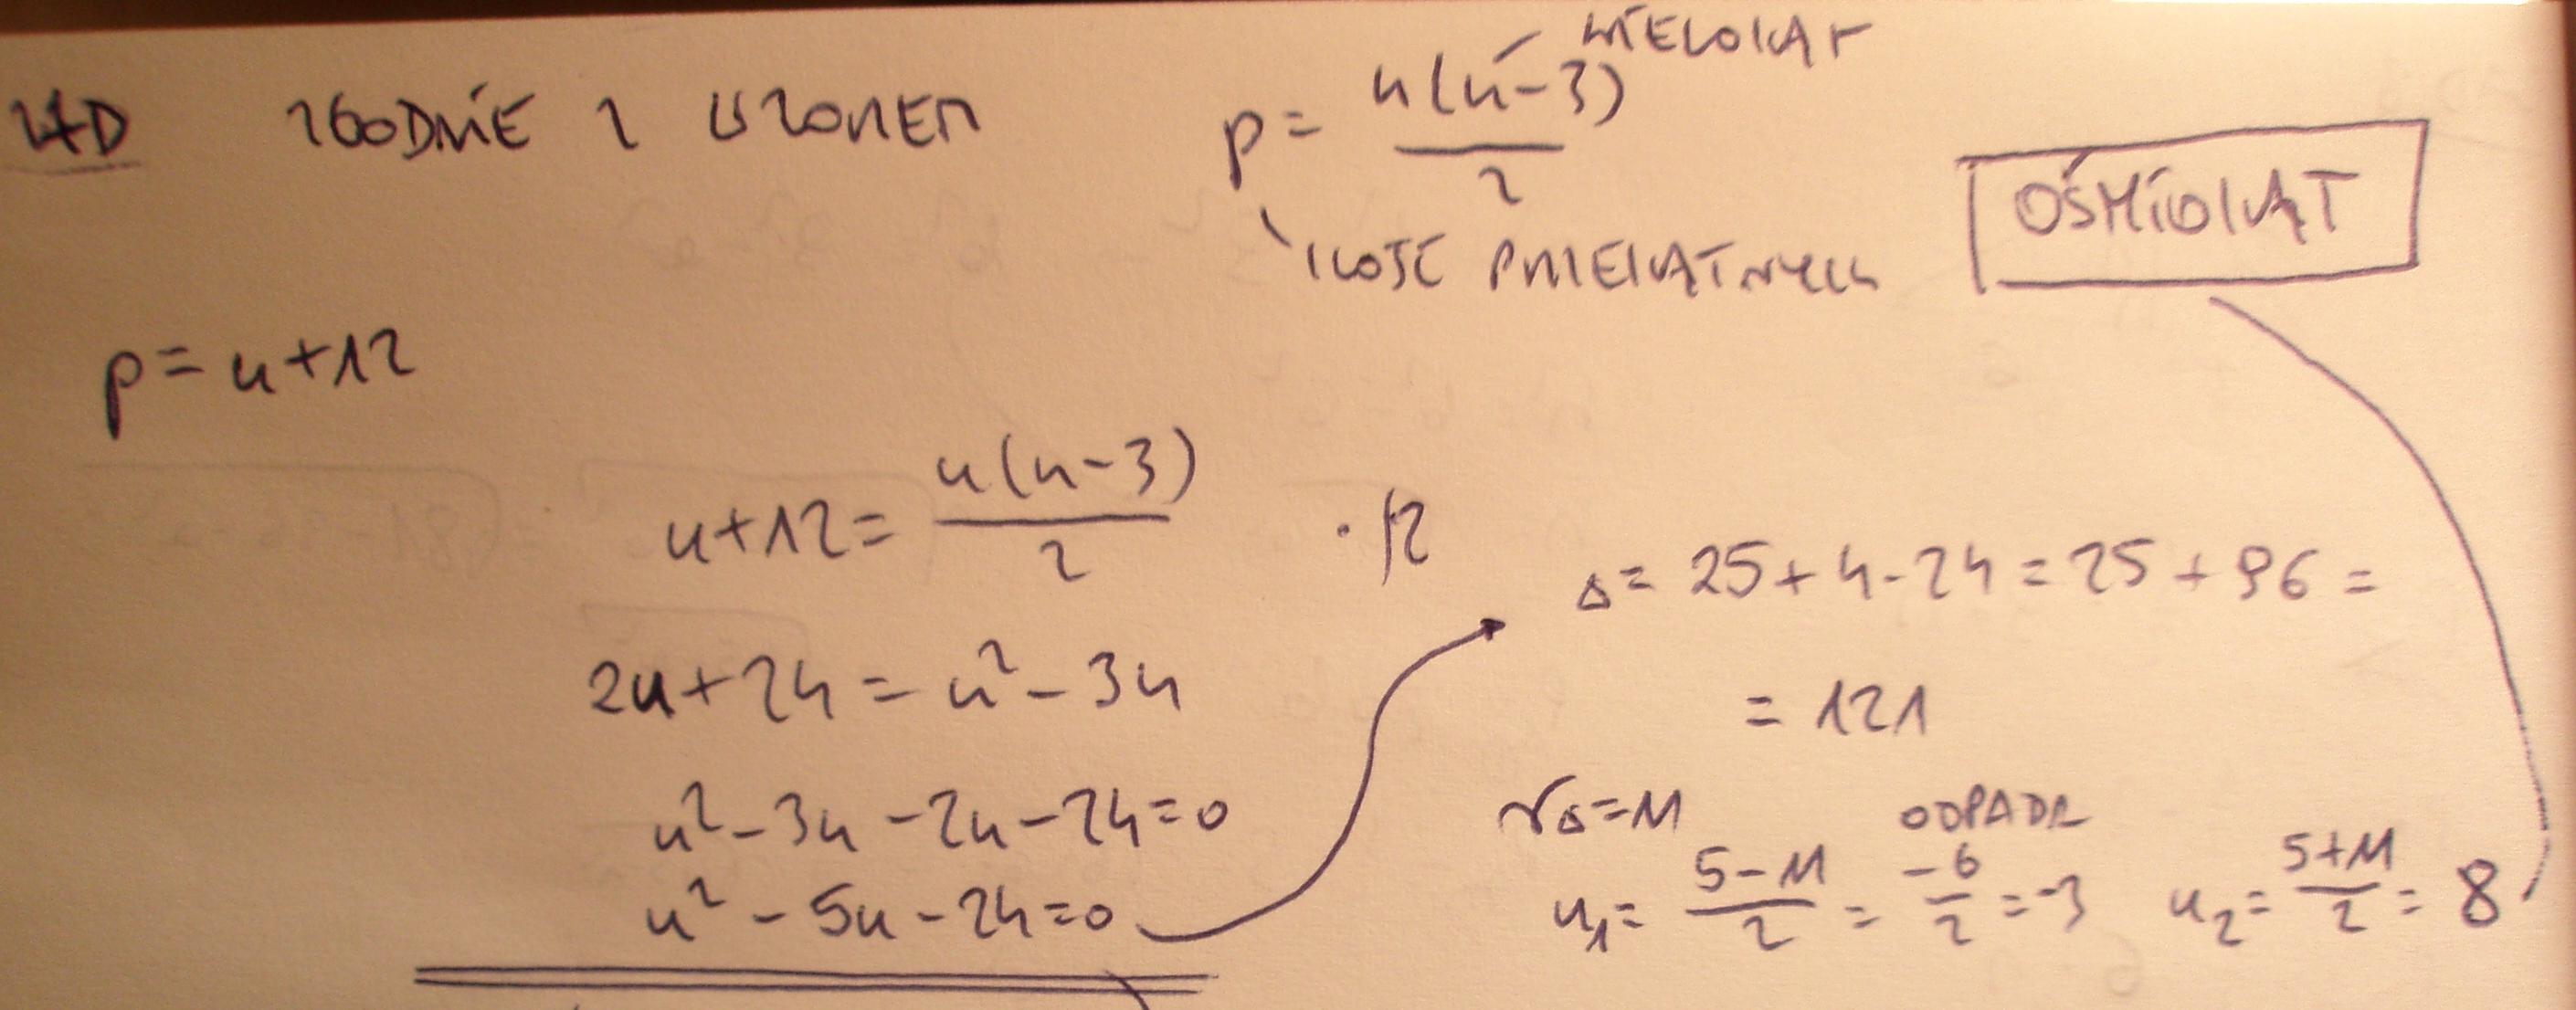 ZAD ZGODNIE Z WZOREM p = n(n-3)/2 WIELOKĄT
ILOŚĆ PRZEKĄTNYCH
OŚMIOKĄT
p = n+12
n+12 = n(n-3)/2 ·/2
2n+24 = n²-3n
n²-3n-2n-24=0
n²-5n-24=0
Δ= 25+4·24=25+96=
= 121
√Δ=11 ODPADA
n₁= (5-11)/2 = -6/2 =-3 n₂= (5+11)/2 = 8